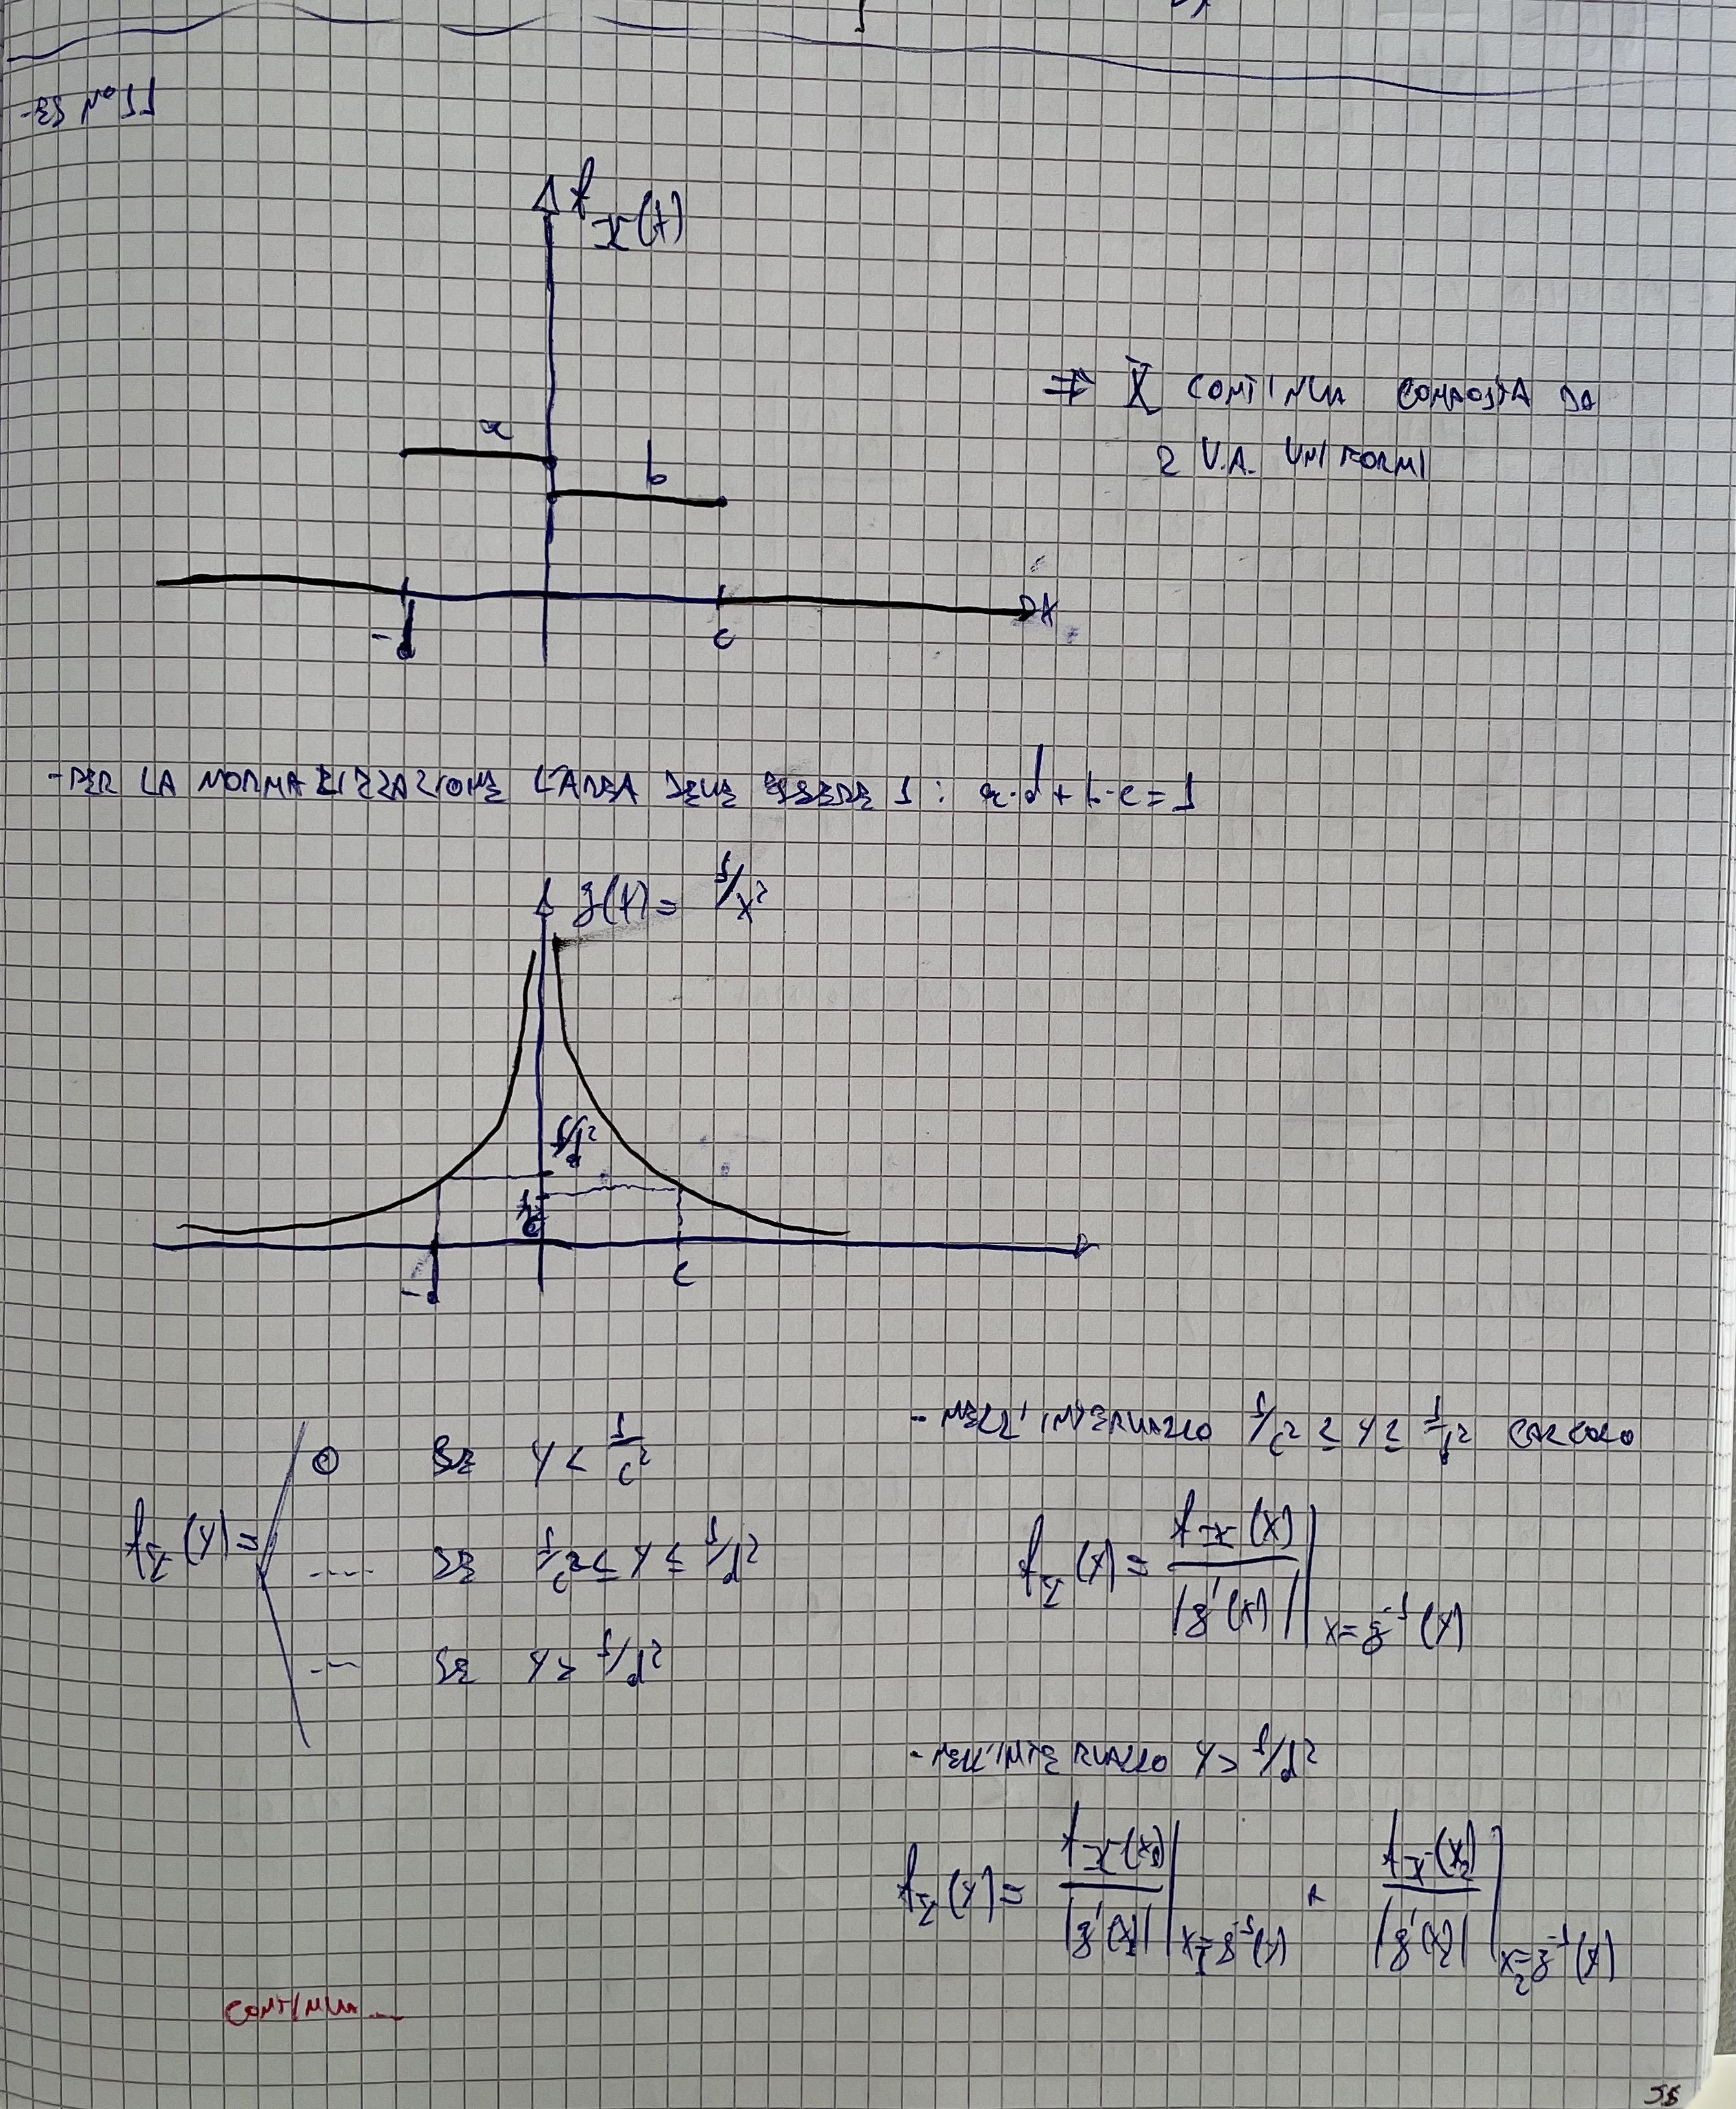 f_X(t)
a
b
-d
c
t
⇒ X CONTINUA COMPOSTA DA
2 V.A. UNIFORMI
-PER LA NORMALIZZAZIONE L'AREA DEVE ESSERE 1: a·d + b·c = 1
g(t) = 1/x²
1/d²
1/c²
-d
c
f_Y(y) =
0 SE y < 1/c²
---- SE 1/c² ≤ y ≤ 1/d²
--- SE y > 1/d²
- NELL'INTERVALLO 1/c² ≤ y ≤ 1/d² CALCOLO
f_Y(y) = f_X(x) / |g'(x)| | x = g⁻¹(y)
- NELL'INTERVALLO y > 1/d²
f_Y(y) = f_X(x₁) / |g'(x₁)| | x₁ = g⁻¹(y) + f_X(x₂) / |g'(x₂)| | x₂ = g⁻¹(y)
CONTINUA...